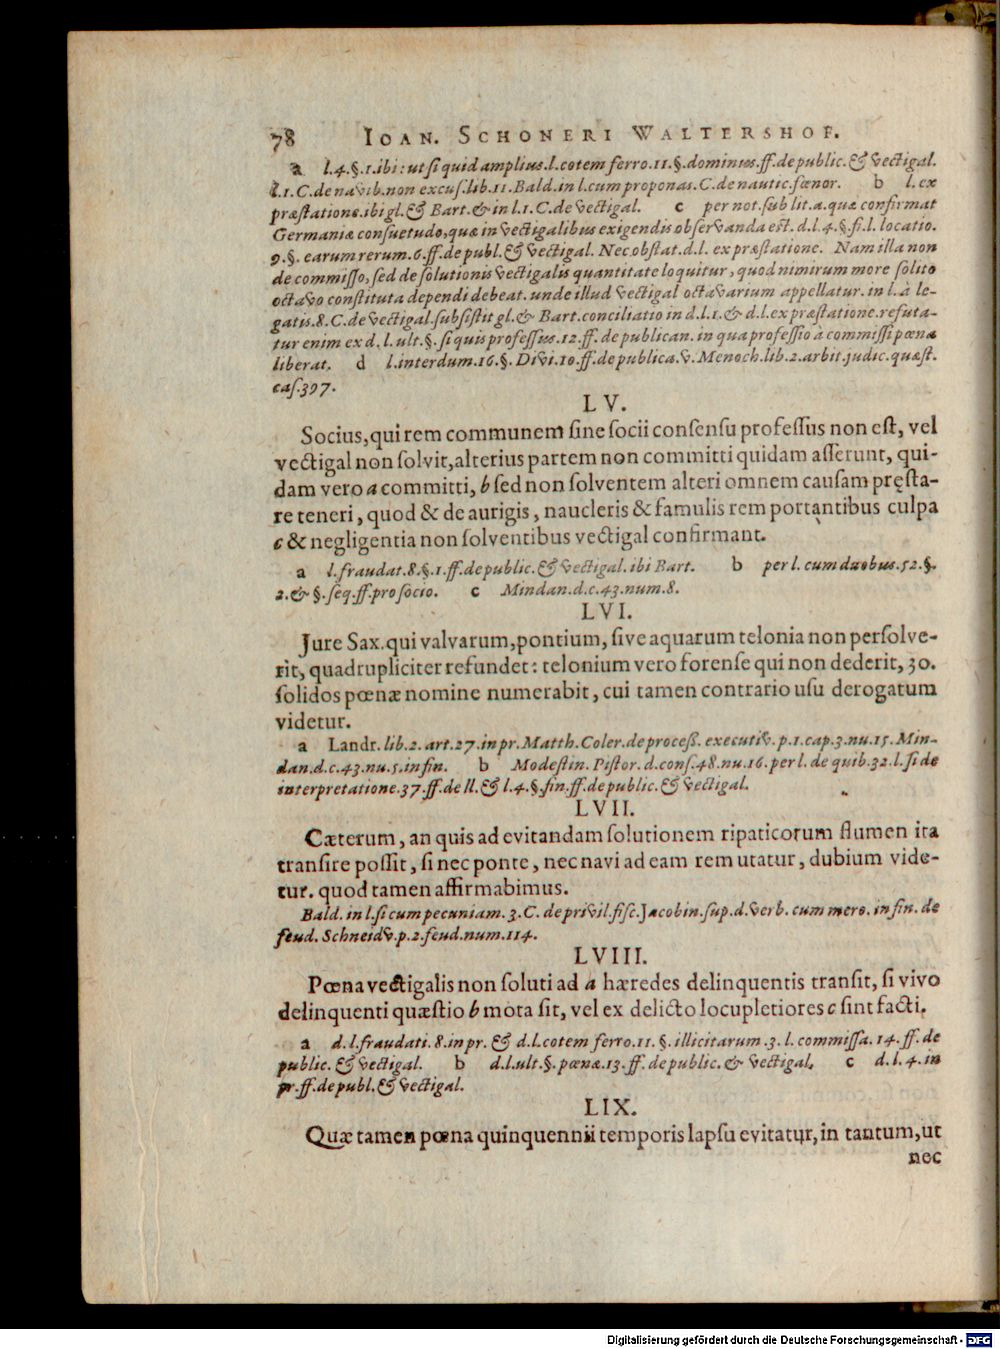 78 IOAN. SCHONERI WALTERSHOF.
a l.4.§.1.ibi: ut si quid amplius.l.cotem ferro.11.§.dominus.ff.de public.& vectigal.
l.1.C.de navib.non excus.lib.11.Bald.in l.cum proponas.C.de nautic.fœnor. b l.ex
præstatione.ibi gl.& Bart.& in l.1.C.de vectigal. c per not.sub lit.a.quæ confirmat
Germaniæ consuetudo,quæ in vectigalibus exigendis observanda est.d.l.4.§.fi.l.locatio.
9.§.earum rerum.6.ff.de publ.& vectigal. Nec obstat.d.l.ex præstatione. Nam illa non
de commisso,sed de solutionis vectigalis quantitate loquitur, quod nimirum more solito
octavo constituta dependi debeat.unde illud vectigal octavarium appellatur.in l.à le-
gatis.8.C.de vectigal.subsistit gl.& Bart.conciliatio in d.l.1.& d.l.ex præstatione.refuta-
tur enim ex d.l.ult.§.si quis professus.12.ff.de publican.in qua professio à commissi pœna
liberat. d l.interdum.16.§.Divi.10.ff.de publica.v.Menoch.lib.2.arbit.judic.quæst.
cas.397.
LV.
Socius,qui rem communem sine socii consensu professus non est, vel
vectigal non solvit,alterius partem non committi quidam asserunt, qui-
dam vero a committi, b sed non solventem alteri omnem causam pręsta-
re teneri, quod & de aurigis, naucleris & famulis rem portantibus culpa
c & negligentia non solventibus vectigal confirmant.
a l.fraudat.8.§.1.ff.de public.& vectigal.ibi Bart. b per l.cum duobus.52.§.
2.& §.seq.ff.pro socio. c Mindan.d.c.43.num.8.
LVI.
Jure Sax.qui valvarum,pontium, sive aquarum telonia non persolve-
rit, quadrupliciter refundet: telonium vero forense qui non dederit, 30.
solidos pœnæ nomine numerabit, cui tamen contrario usu derogatum
videtur.
a Landr.lib.2.art.27.in pr.Matth.Coler.de process.executiv.p.1.cap.3.nu.15.Min-
dan.d.c.43.nu.5.in fin. b Modestin.Pistor.d.cons.48.nu.16.per l.de quib.32.l.si de
interpretatione.37.ff.de ll.& l.4.§.fin.ff.de public.& vectigal.
LVII.
Cæterum, an quis ad evitandam solutionem ripaticorum flumen ita
transire possit, si nec ponte, nec navi ad eam rem utatur, dubium vide-
tur. quod tamen affirmabimus.
Bald.in l.si cum pecuniam.3.C.de privil.fisc.Jacobin.sup.d.verb.cum mero.in fin.de
feud.Schneidv.p.2.feud.num.114.
LVIII.
Pœna vectigalis non soluti ad a hæredes delinquentis transit, si vivo
delinquenti quæstio b mota sit, vel ex delicto locupletiores c sint facti.
a d.l.fraudati.8.in pr.& d.l.cotem ferro.11.§.illicitarum.3.l.commissa.14.ff.de
public.& vectigal. b d.l.ult.§.pœnæ.13.ff.de public.& vectigal. c d.l.4.in
pr.ff.de publ.& vectigal.
LIX.
Quæ tamen pœna quinquennii temporis lapsu evitatur,in tantum,ut
nec
Digitalisierung gefördert durch die Deutsche Forschungsgemeinschaft - DFG